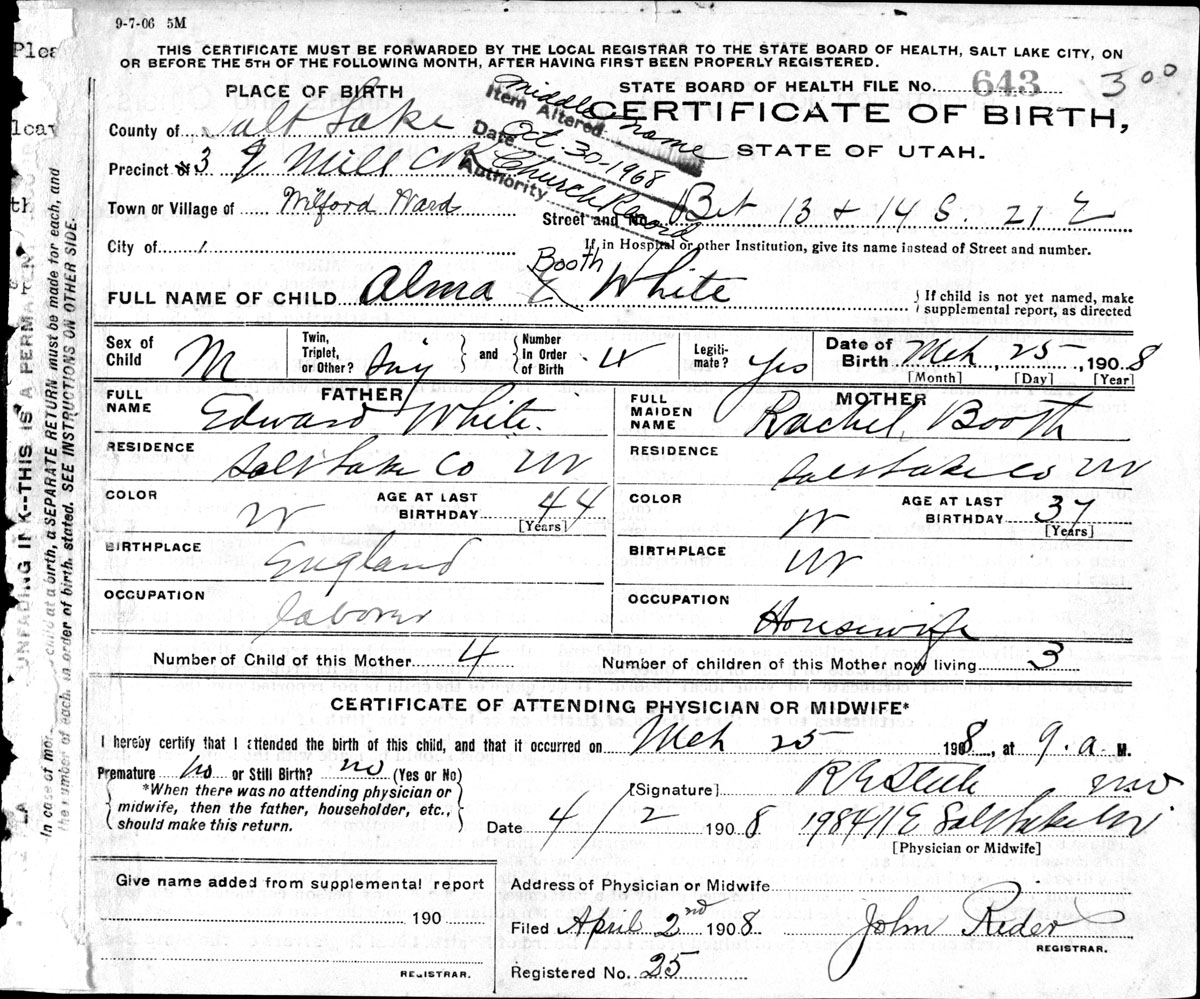 9-7-06 5M
THIS CERTIFICATE MUST BE FORWARDED BY THE LOCAL REGISTRAR TO THE STATE BOARD OF HEALTH, SALT LAKE CITY, ON
OR BEFORE THE 5TH OF THE FOLLOWING MONTH, AFTER HAVING FIRST BEEN PROPERLY REGISTERED.
PLACE OF BIRTH
STATE BOARD OF HEALTH FILE No. 643
300
CERTIFICATE OF BIRTH,
STATE OF UTAH.
Item Altered Middle name
Date Oct. 30-1968
Authority Church Record
County of Salt Lake
Precinct 3 Mill
Town or Village of Wilford Ward
Street and No. Bet 13 + 14 S. 21 E
City of
If in Hospital or other Institution, give its name instead of Street and number.
Booth
FULL NAME OF CHILD Alma White
If child is not yet named, make
supplemental report, as directed
Sex of Child M
Twin, Triplet, or Other?
and
Number In Order of Birth 4
Legiti-mate? Yes
Date of Birth Mch, 25, 1908
[Month] [Day] [Year]
FATHER
FULL NAME Edward White.
RESIDENCE Salt Lake Co
COLOR W
AGE AT LAST BIRTHDAY 44
[Years]
BIRTHPLACE England
OCCUPATION laborer
MOTHER
FULL MAIDEN NAME Rachel Booth
RESIDENCE Salt Lake Co
COLOR W
AGE AT LAST BIRTHDAY 37
[Years]
BIRTHPLACE
OCCUPATION Housewife
Number of Child of this Mother 4
Number of children of this Mother now living 3
CERTIFICATE OF ATTENDING PHYSICIAN OR MIDWIFE*
I hereby certify that I attended the birth of this child, and that it occurred on Mch 25 1908, at 9. a M.
Premature no or Still Birth? no (Yes or No)
*When there was no attending physician or
midwife, then the father, householder, etc.,
should make this return.
[Signature]
Date 4/2 1908
[Physician or Midwife]
Give name added from supplemental report
190
REGISTRAR.
Address of Physician or Midwife
Filed April 2nd 1908
John Rider
REGISTRAR.
Registered No. 25
UNFADING INK--THIS IS A PERMANENT
In case of more child at a birth, a SEPARATE RETURN must be made for each, and
the number of each, in order of birth, stated. SEE INSTRUCTIONS ON OTHER SIDE.